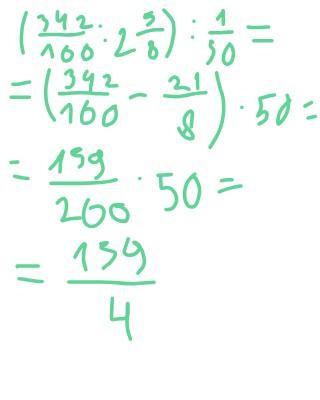 (342/100 : 2 5/8) : 1/50 =
= (342/100 - 21/8) · 50 =
= 159/200 · 50 =
= 159/4